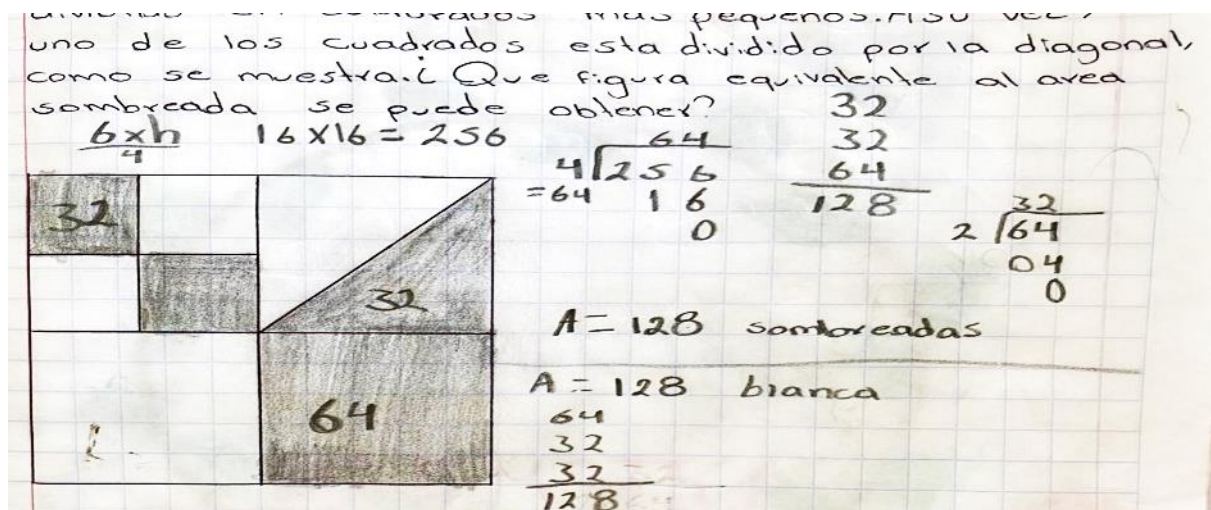 dividido en cuadrados mas pequeños. A su vez,
uno de los cuadrados esta dividido por la diagonal,
como se muestra. ¿Que figura equivalente al area
sombreada se puede obtener?
6xh
4
16x16 = 256
64
4 256
=64 16
0
32
32
64
128
32
2 64
04
0
32
32
64
A = 128 sombreadas
A = 128 blanca
64
32
32
128